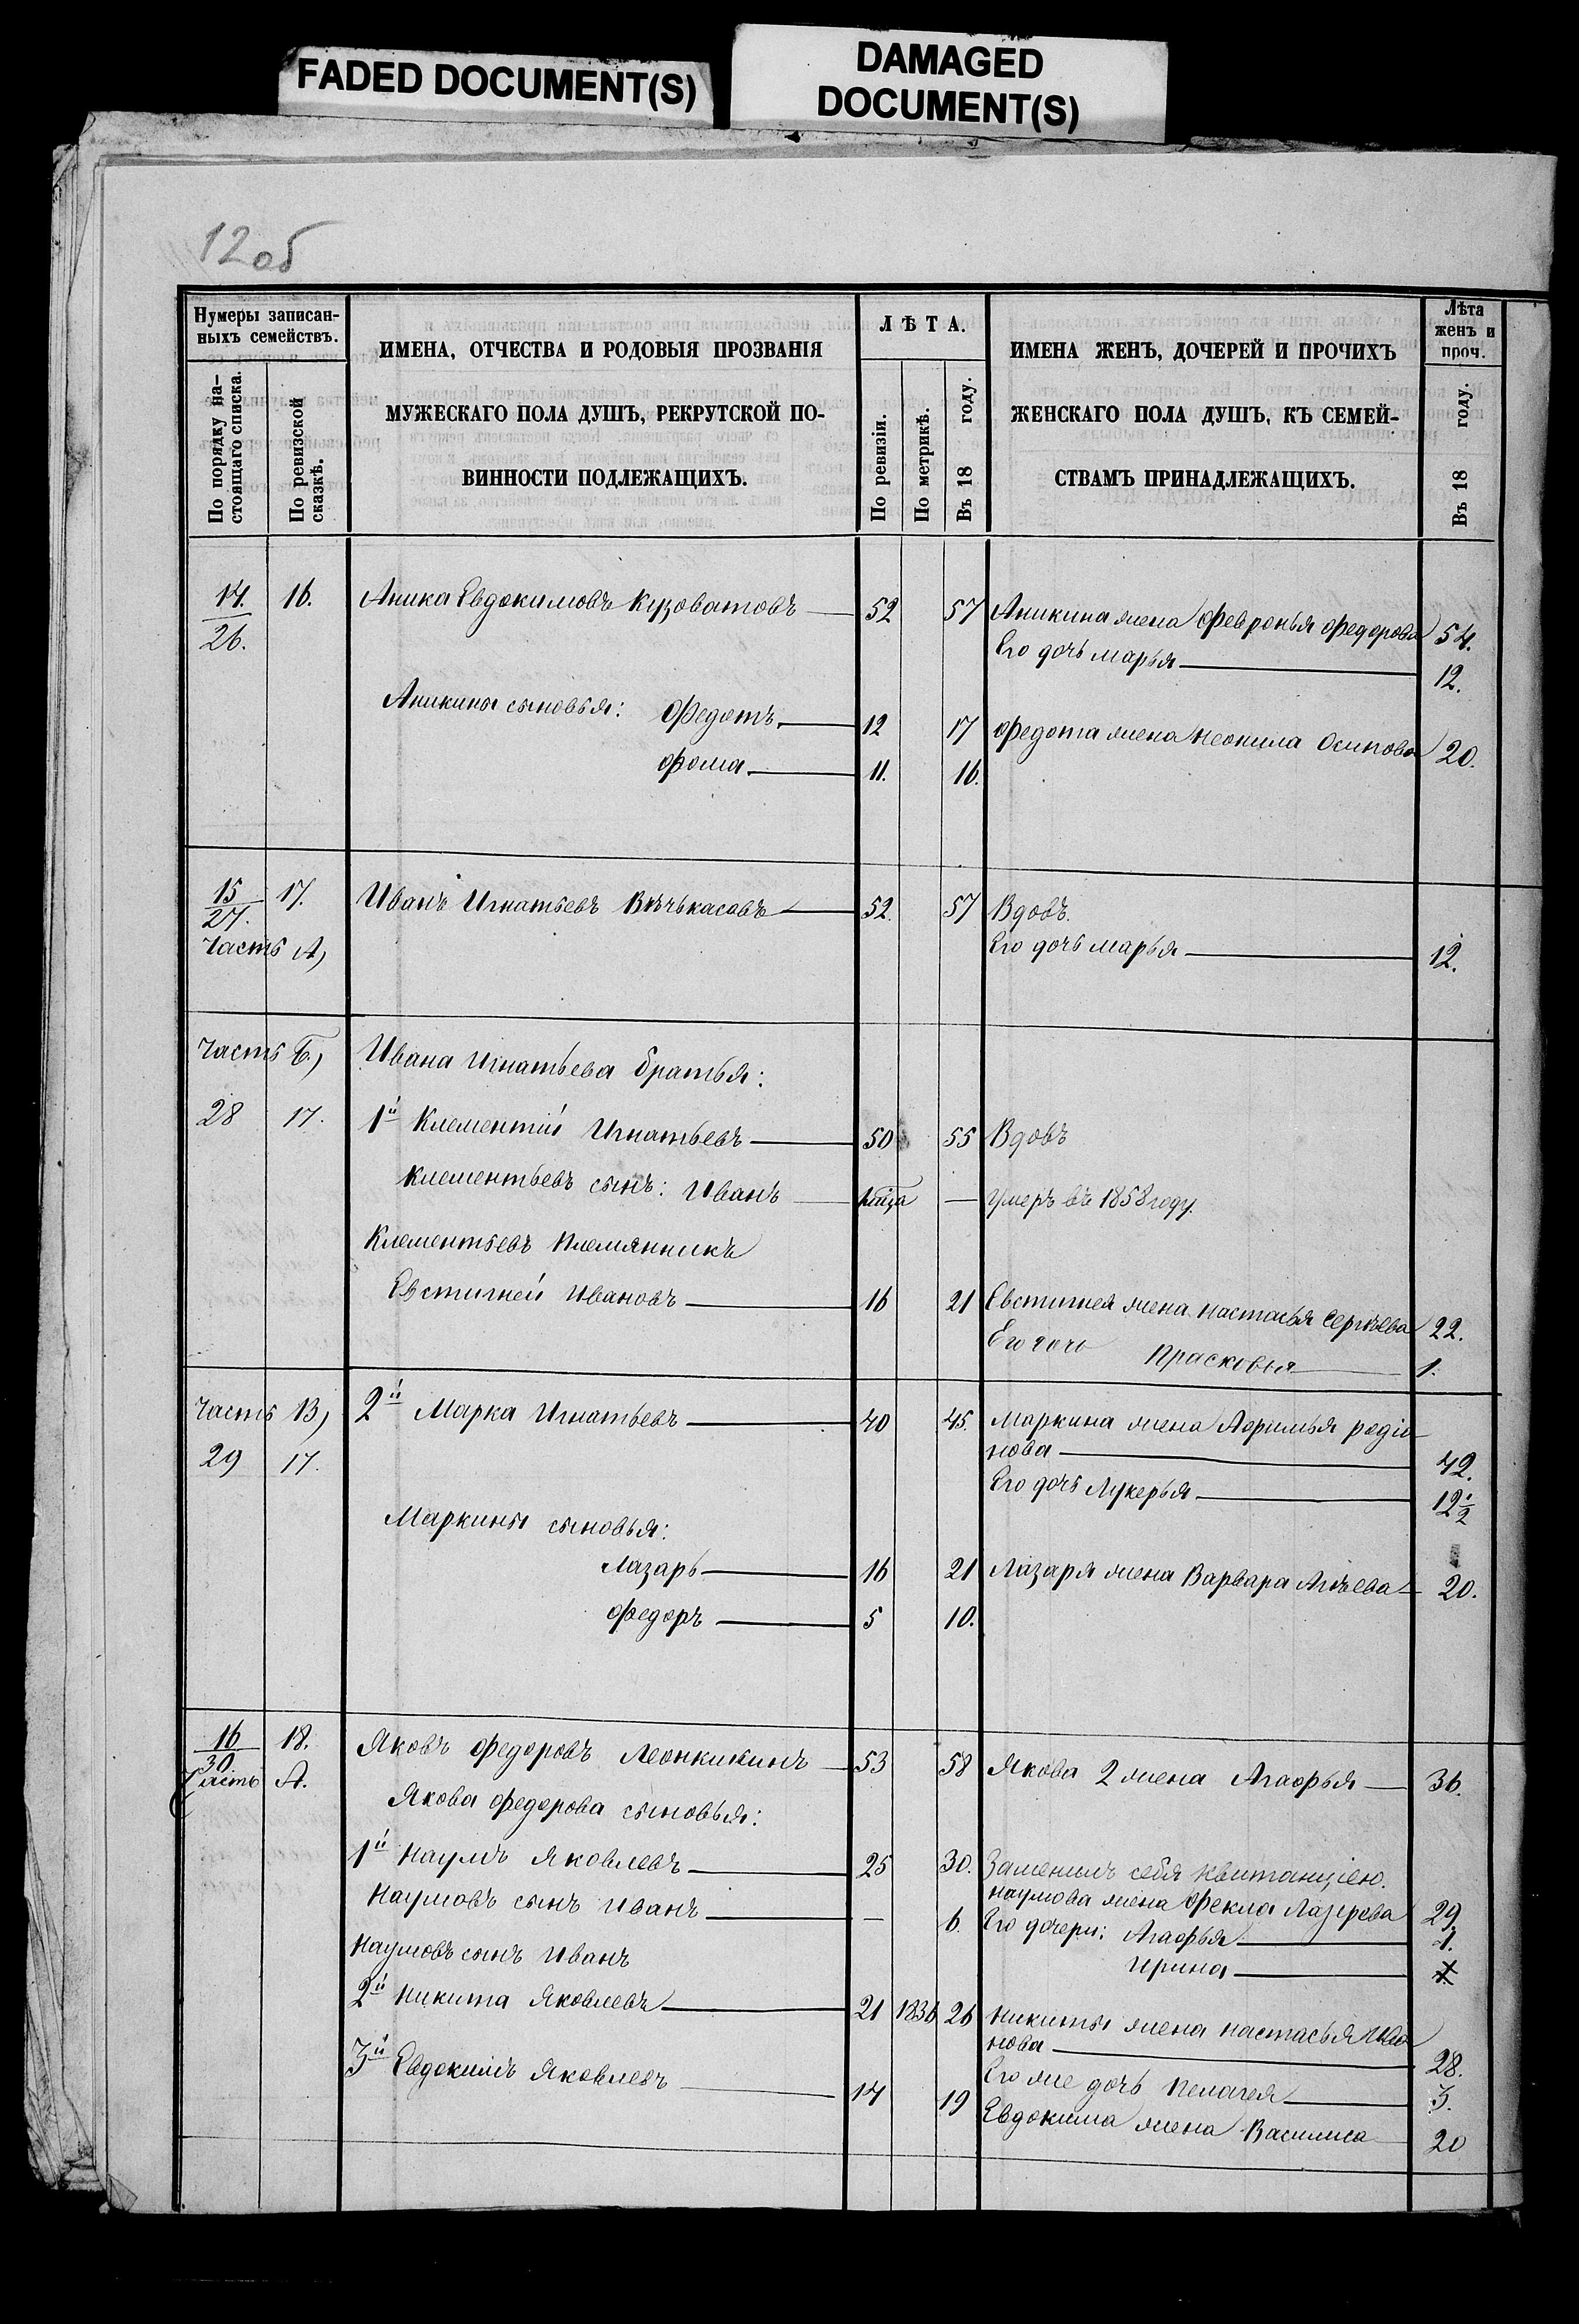 FADED DOCUMENT(S)
DAMAGED
DOCUMENT(S)
12 об
Нумеры записан-
ныхъ семействъ.
По порядку на-
стоящаго списка.
По ревизской
сказкѣ.
ИМЕНА, ОТЧЕСТВА И РОДОВЫЯ ПРОЗВАНІЯ
МУЖЕСКАГО ПОЛА ДУШЪ, РЕКРУТСКОЙ ПО-
ВИННОСТИ ПОДЛЕЖАЩИХЪ.
ЛѢТА.
По ревизіи.
По метрикѣ.
Въ 18 году.
ИМЕНА ЖЕНЪ, ДОЧЕРЕЙ И ПРОЧИХЪ
ЖЕНСКАГО ПОЛА ДУШЪ, КЪ СЕМЕЙ-
СТВАМЪ ПРИНАДЛЕЖАЩИХЪ.
Лѣта
женъ и
проч.
Въ 18 году.
14. 16. Аника Евдокимовъ Кузоватовъ 52 57 Аникина жена Февронья Федорова 54.
26.
Его дочь Марья 12.
Аникины сыновья: Федотъ 12 17 Федота жена Неонила Осипова 20.
Фома 11. 16.
15 17. Иванъ Игнатьевъ 52. 57 Вдовъ.
27.
Часть А) Его дочь Марья 12.
Часть Б) Ивана Игнатьева братья:
28 17. 1й Клементій Игнатьевъ 50 55 Вдовъ
Клементьевъ сынъ: Иванъ — умеръ въ 1858 году.
Клементьевъ племянникъ
Евстигней Ивановъ 16 21 Евстигнея жена Настасья Сергѣева 22.
Его дочь Прасковья 1.
Часть В) 2й Марка Игнатьевъ 40 45. Маркина жена Афимья Родіо
нова 42.
29 17.
Его дочь Лукерья 12 1/2
Маркины сыновья:
Лазарь 16 21 Лазаря жена Варвара 20.
Федоръ 5 10.
16 18. Яковъ Федоровъ Леонкикинъ 53 58 Якова 2 жена Агафья 36.
30
Часть А.
Якова Федорова сыновья:
1й Наумъ Яковлевъ 25 30. Заменилъ себя квитанціею.
Наумова жена Фекла Лазерева 29
Наумовъ сынъ Иванъ — 6. Его дочери: Агафья 1.
Наумовъ сынъ Иванъ
Ирина
2й Никита Яковлевъ 21 1836 26 Никиты жена Настасья Ива
нова 28.
Его же дочь Пелагея 3.
3й Евдокимъ Яковлевъ 14 19 Евдокима жена Василиса 20